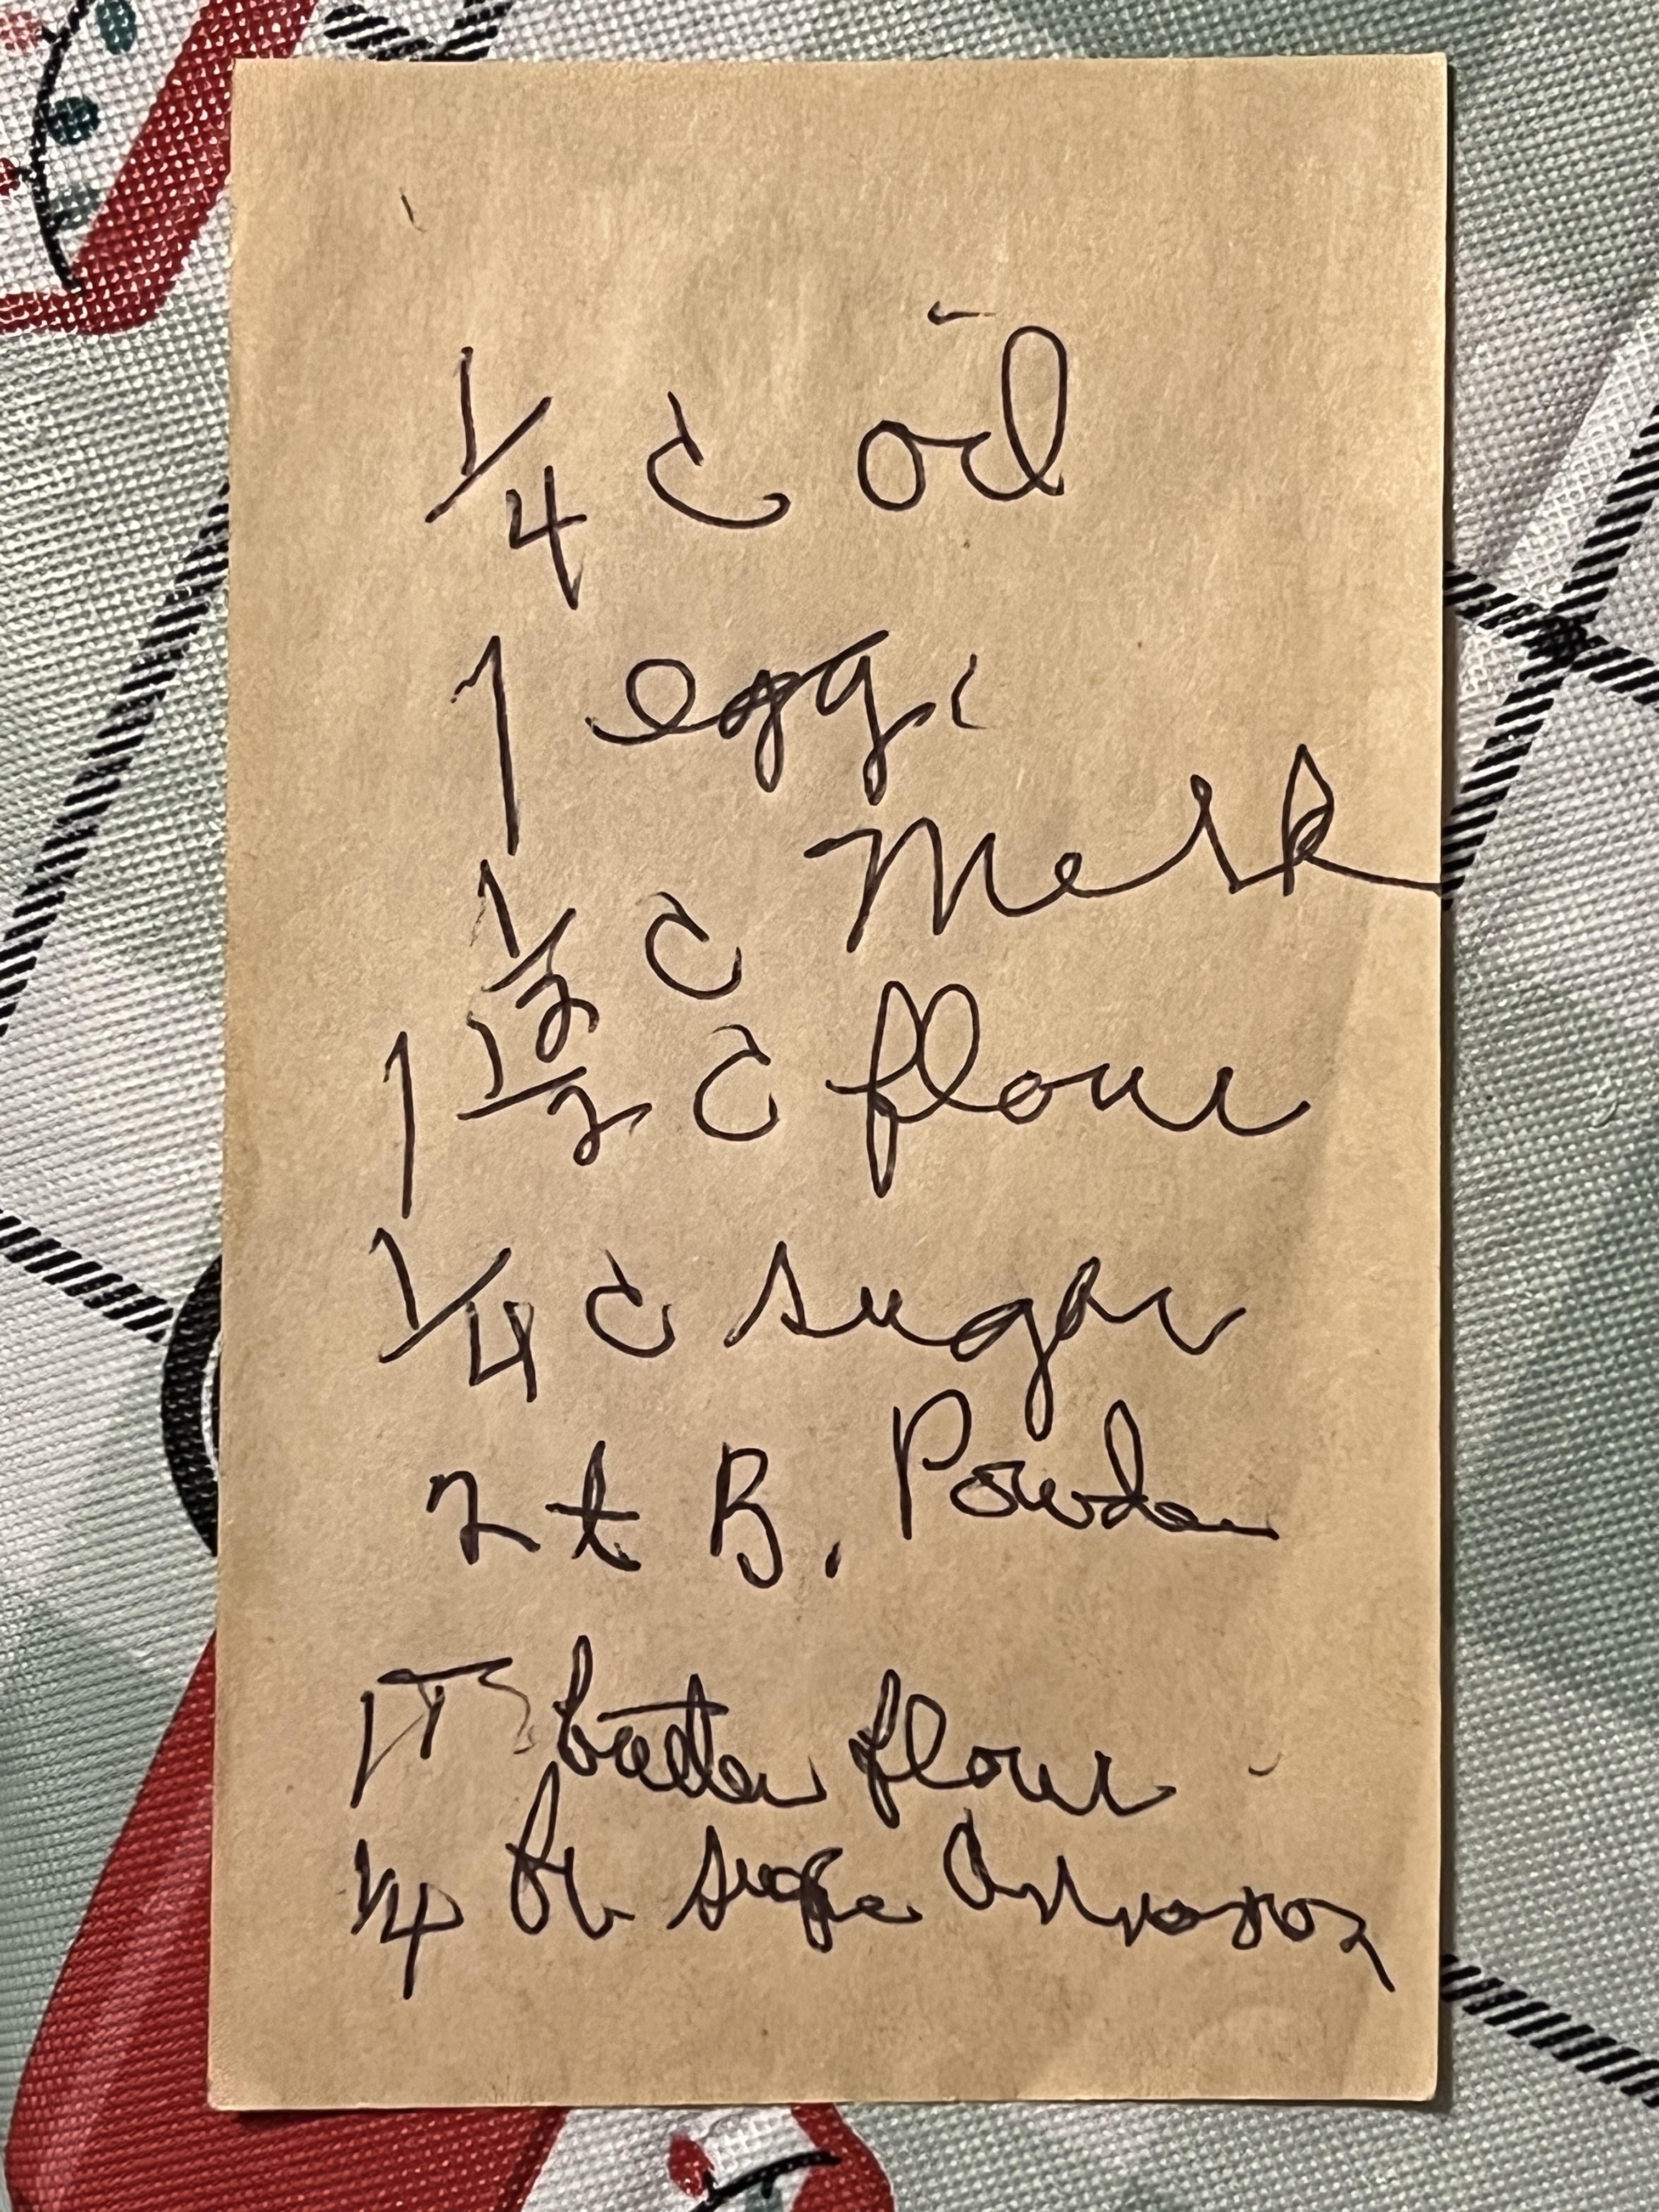 1/4 c oil
1 egg
1/2 c Milk
1 1/2 c flour
1/4 c sugar
2 t B. Powder
1 T butter flour
1/4 br sugar Cinnamon